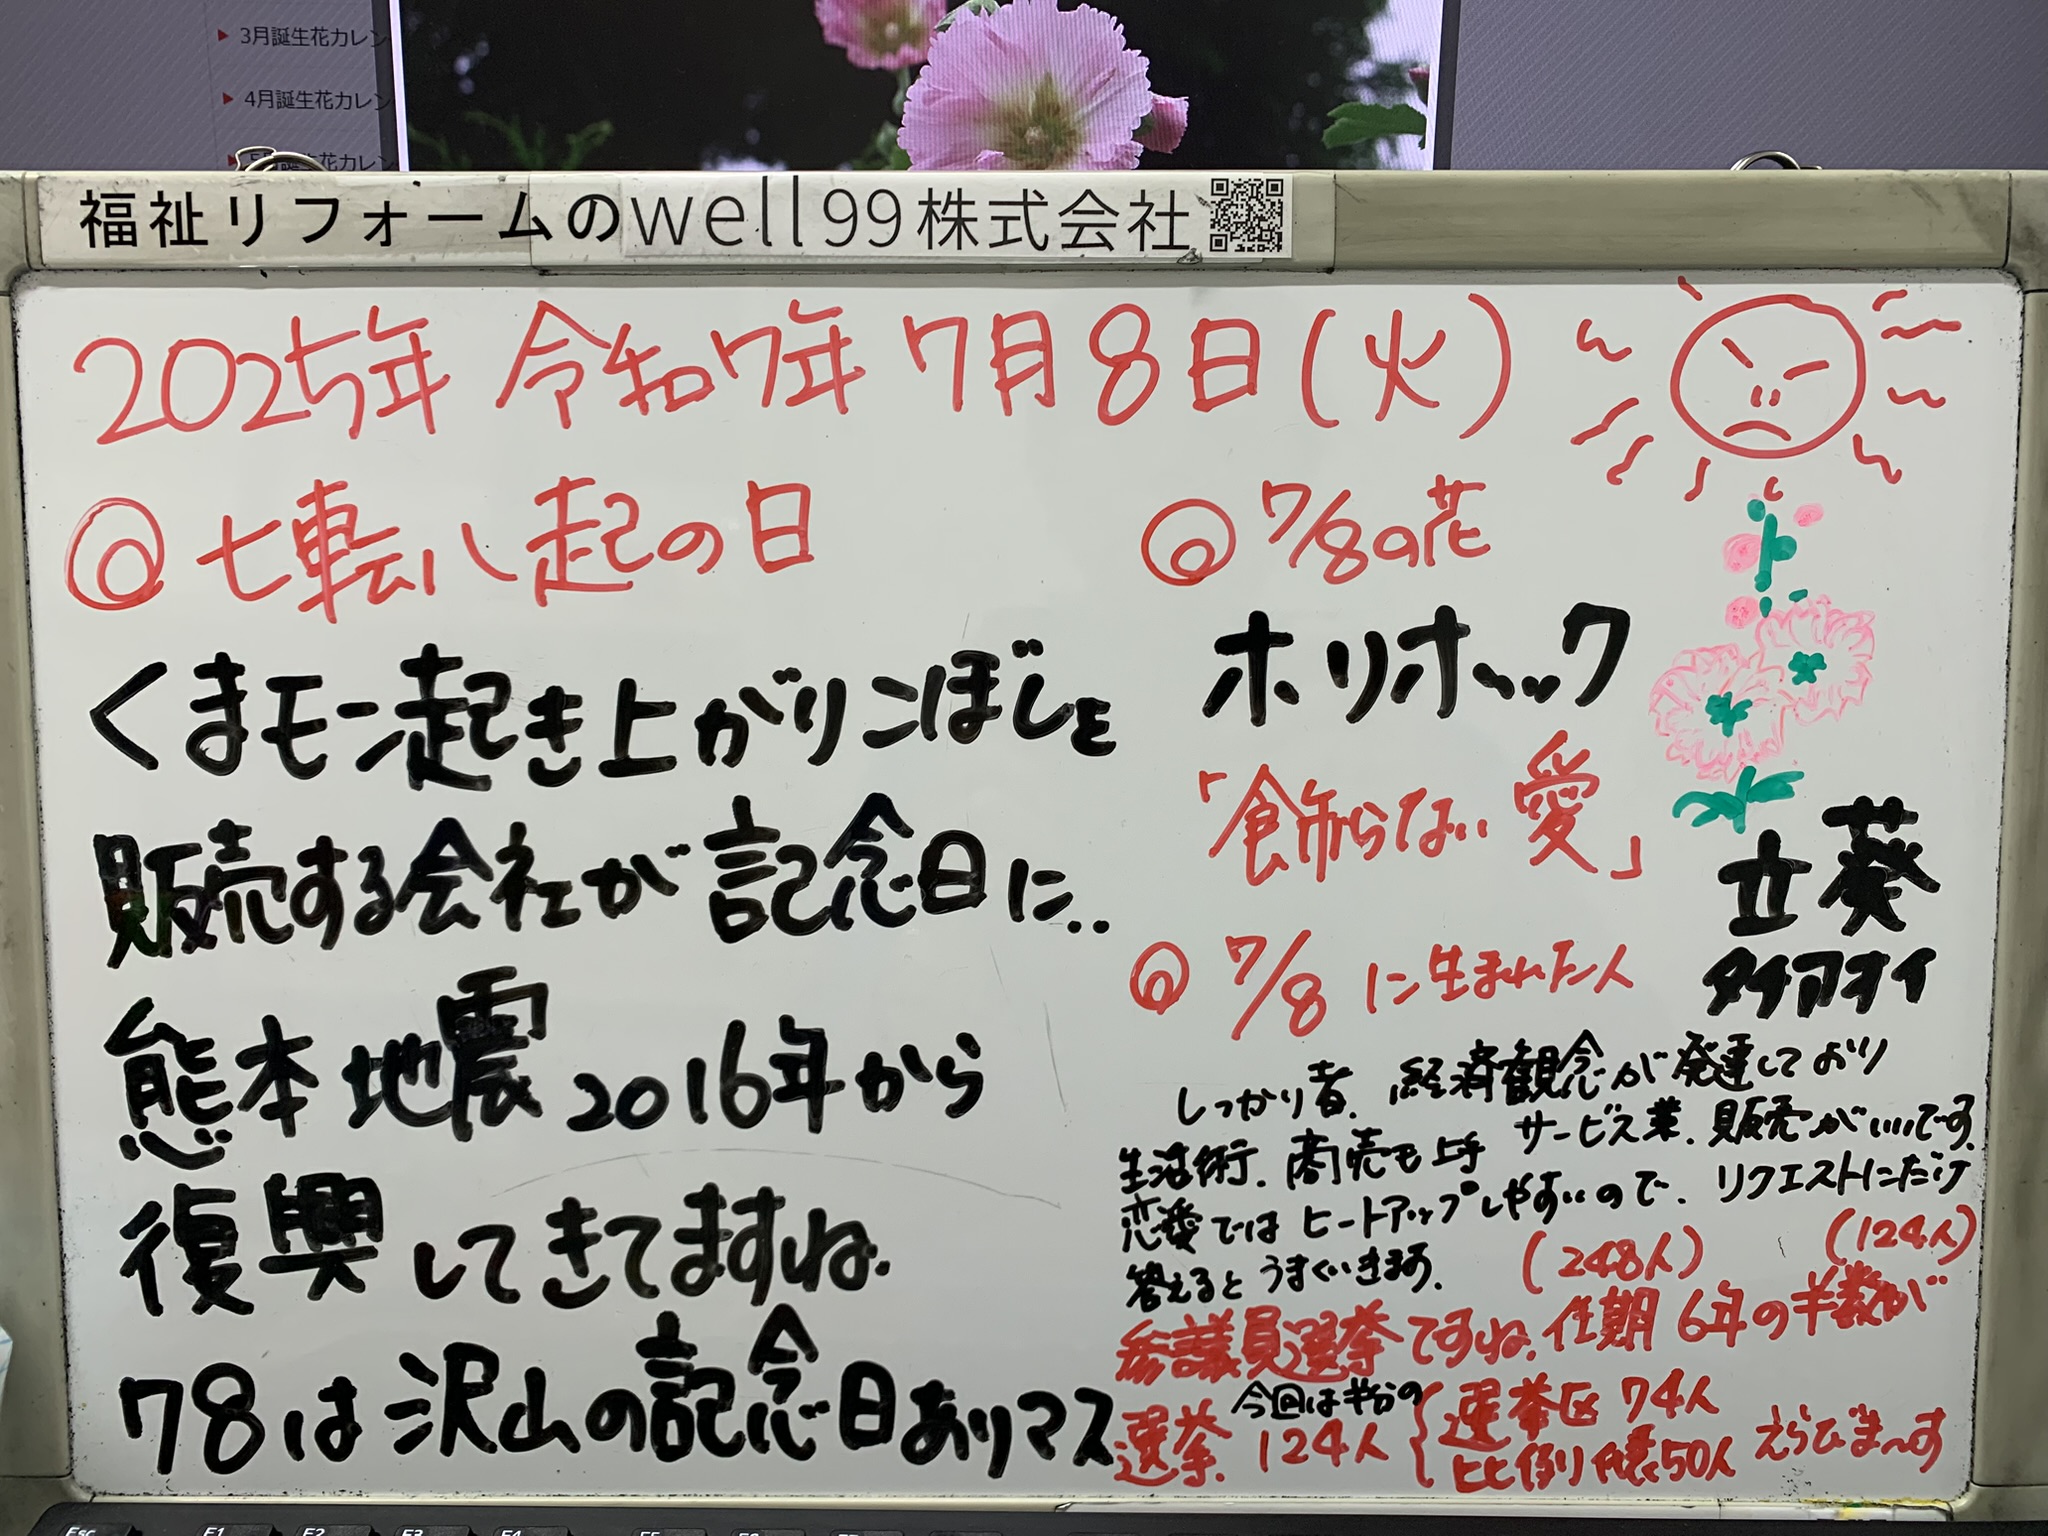 3月誕生花カレン
4月誕生花カレン
誕生花カレン
福祉リフォームのwell99株式会社
2025年 令和7年 7月8日(火)
◎七転八起の日
くまモン起き上がりこぼしを
販売する会社が記念日に..
熊本地震2016年から
復興してきてますね.
78は沢山の記念日ありマス
◎7/8の花
ホリホック
「飾らない愛」
立葵
タチアオイ
◎7/8に生まれた人
しっかり者、経済観念が発達しており
生活術、商売も上手 サービス業、販売がいいです.
恋愛ではヒートアップしやすいので、リクエストにだけ
答えるとうまくいきます.
(248人) (124人)
参議員選挙ですね.任期6年の半数が
選挙. 今回は半分の 124人 { 選挙区 74人 比例代表50人 えらびま〜す
Esc F1 F2 F3 F4